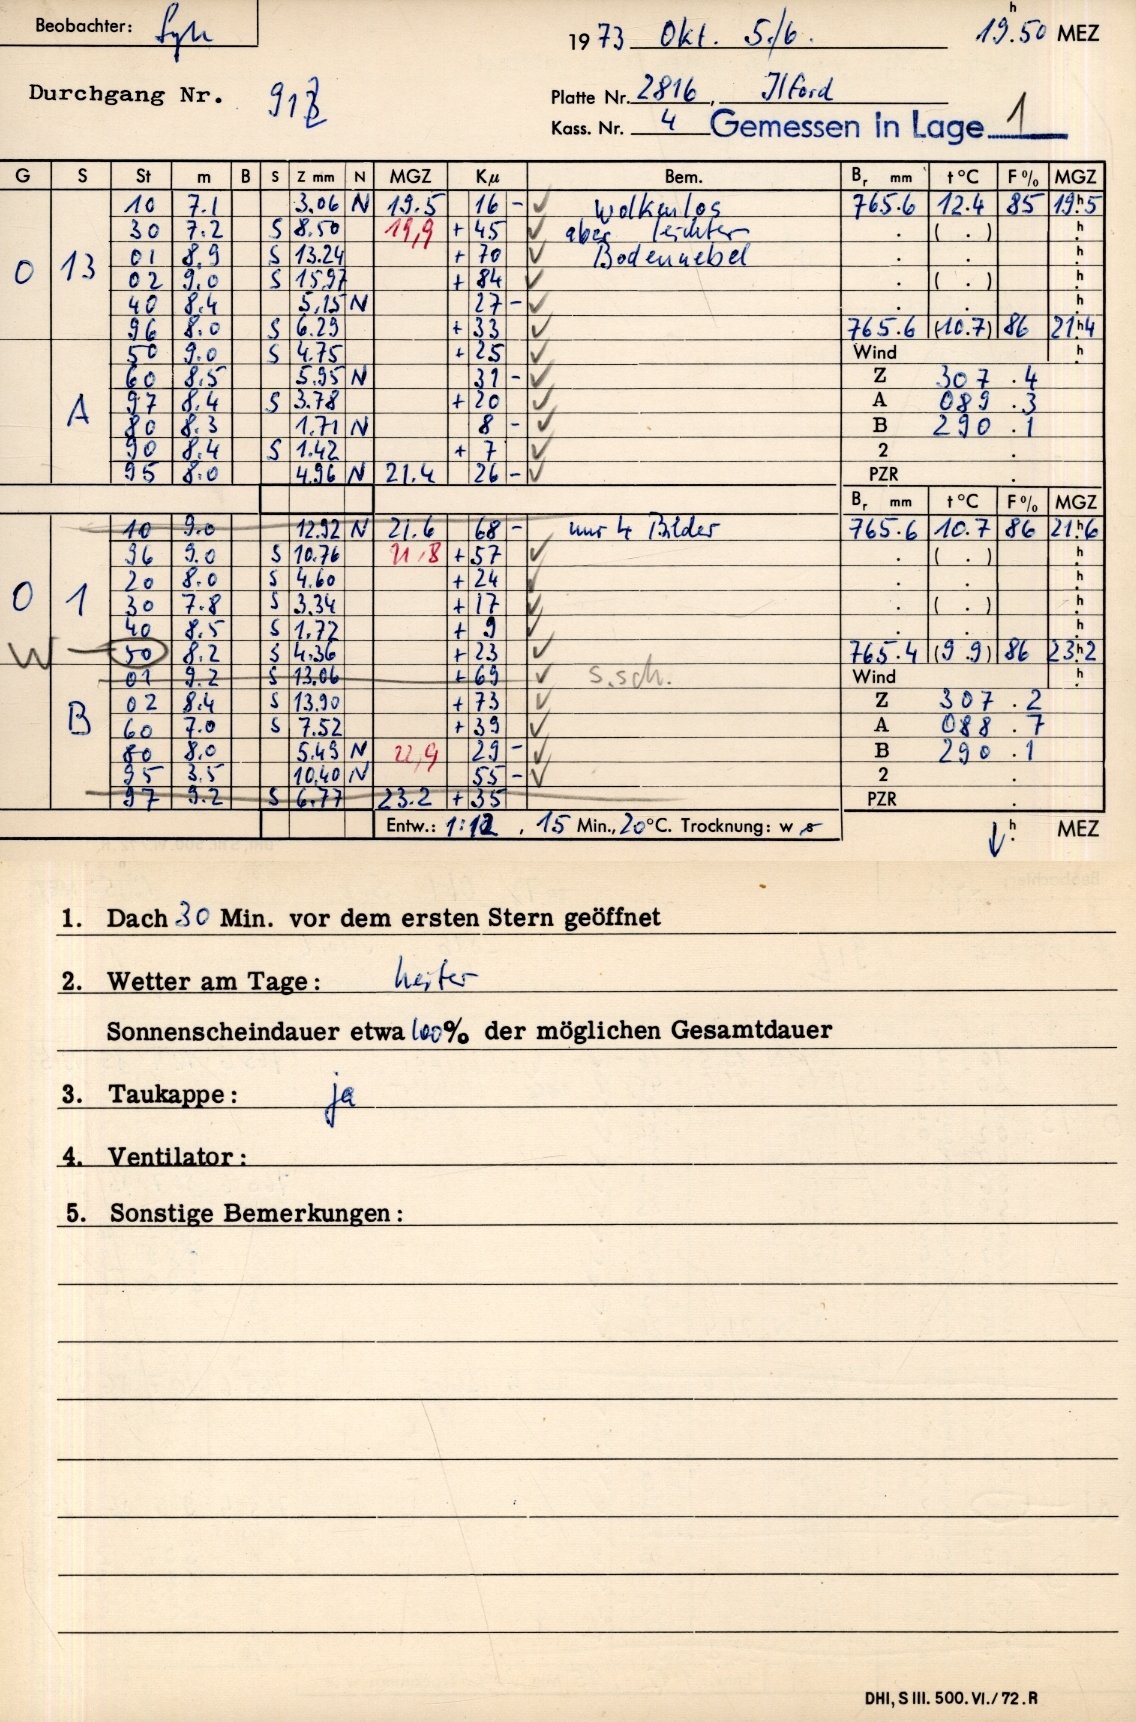 Beobachter:
1973 Okt. 5./6. 19h.50 MEZ
Durchgang Nr.
Platte Nr. 2816, Ilford
Kass. Nr. 4 Gemessen in Lage 1
G S St m B S Z mm N MGZ Kμ Bem. Br mm t °C F % MGZ
10 7.1 3.06 N 19.5 16 - ✓ Wolkenlos 765.6 12.4 85 19h5
30 7.2 S 8.50 19,9 + 45 ✓ aber leichter ( . ) h
0 13 01 8.9 S 13.24 + 70 ✓ Bodennebel . . h
02 9.0 S 15.97 + 84 ✓ . ( . ) h
40 8.4 5.15 N 27 - ✓ . . h
96 8.0 S 6.29 + 33 ✓ 765.6 (10.7) 86 21h4
50 9.0 S 4.75 + 25 ✓ Wind h
60 8.5 5.95 N 31 - ✓ Z 307.4
A 97 8.4 S 3.78 + 20 ✓ A 089.3
80 8.3 1.71 N 8 - ✓ B 290.1
90 8.4 S 1.42 + 7 ✓ 2 .
95 8.0 4.96 N 21.4 26 - ✓ PZR .
Br mm t °C F % MGZ
10 9.0 12.92 N 21.6 68 - nur 4 Bilder 765.6 10.7 86 21h6
96 9.0 S 10.76 21,8 + 57 ✓ . ( . ) h
20 8.0 S 4.60 + 24 ✓ . . h
0 1 30 7.8 S 3.34 + 17 ✓ . ( . ) h
40 8.5 S 1.72 + 9 ✓ . . h
W 50 8.2 S 4.36 + 23 ✓ 765.4 (9.9) 86 23h2
01 9.2 S 13.06 + 69 ✓ s.sch. Wind h
02 8.4 S 13.90 + 73 ✓ Z 307.2
B 60 7.0 S 7.52 + 39 ✓ A 088.7
80 8.0 5.49 N 22,9 29 - ✓ B 290.1
95 3.5 10.40 N 55 - ✓ 2 .
97 9.2 S 6.77 23.2 + 35 PZR .
Entw.: 1:12, 15 Min., 20°C. Trocknung: w s ↓ h. MEZ
1. Dach 30 Min. vor dem ersten Stern geöffnet
2. Wetter am Tage: heiter
Sonnenscheindauer etwa 100% der möglichen Gesamtdauer
3. Taukappe: ja
4. Ventilator:
5. Sonstige Bemerkungen:
DHI, S III. 500. VI./72. R